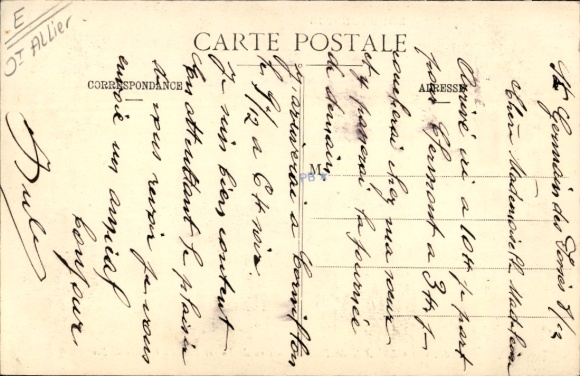 E
Dt Allier
CARTE POSTALE
CORRESPONDANCE
ADRESSE
M
PB
St Germain des Fossés 8/12
Chère Mademoiselle
Arrivé ici a 10H je part
pour Clermont a 3H je
coucherai chez ma soeur
et y passerai la journée
de demain
J'arriverai a
le 9/12 a 6H soir.
Je suis bien content
En attendant le plaisir
de vous revoir je vous
envoie un amical
bonjour